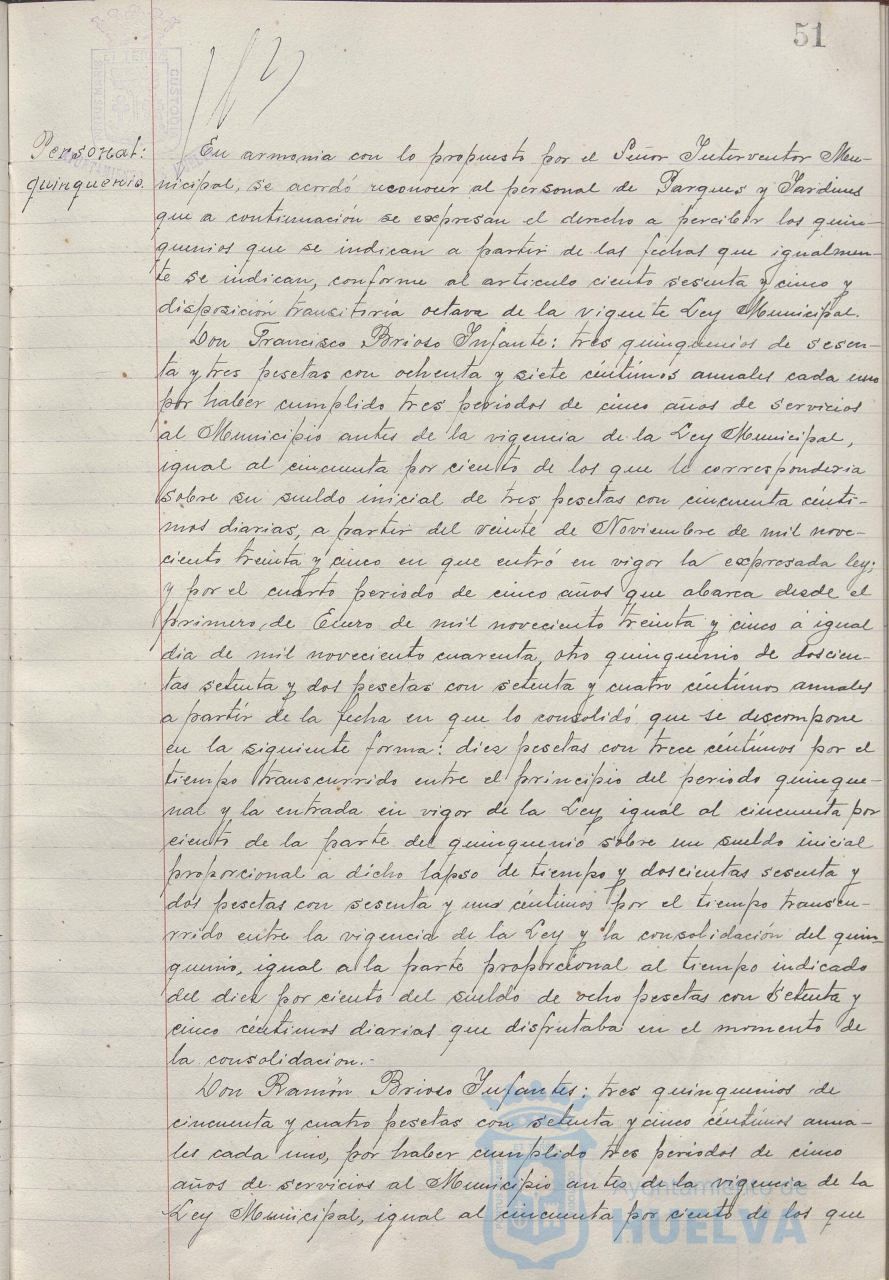 51
Personal:
quinquenio.
En armonia con lo propuesto por el Señor Interventor Mu-
nicipal, se acordó reconocer al personal de Parques y Jardines
que a continuación se expresan el derecho a percibir los quin-
quenios que se indican a partir de las fechas que igualmen-
te se indican, conforme al articulo ciento sesenta y cinco y
disposición transitoria octava de la vigente Ley Municipal.
Don Francisco Brioso Infante: tres quinquenios de sesen-
ta y tres pesetas con ochenta y siete céntimos anuales cada uno
por haber cumplido tres periodos de cinco años de servicios
al Municipio antes de la vigencia de la Ley Municipal,
igual al cincuenta por ciento de los que le corresponderia
sobre su sueldo inicial de tres pesetas con cincuenta cénti-
mos diarias, a partir del veinte de Noviembre de mil nove-
ciento treinta y cinco en que entró en vigor la expresada ley;
y por el cuarto periodo de cinco años que abarca desde el
primero, de Enero de mil noveciento treinta y cinco á igual
dia de mil noveciento cuarenta, otro quinquenio de doscien-
tas setenta y dos pesetas con setenta y cuatro céntimos anuales
a partir de la fecha en que lo consolidó que se descompone
en la siguiente forma: diez pesetas con trece céntimos por el
tiempo transcurrido entre el principio del periodo quinque-
nal y la entrada en vigor de la Ley igual al cincuenta por
ciento de la parte del quinquenio sobre un sueldo inicial
proporcional a dicho lapso de tiempo y doscientas sesenta y
dos pesetas con sesenta y uno céntimos por el tiempo transcu-
rrido entre la vigencia de la Ley y la consolidación del quin-
quenio, igual a la parte proporcional al tiempo indicado
del diez por ciento del sueldo de ocho pesetas con setenta y
cinco céntimos diarias que disfrutaba en el momento de
la consolidacion.-
Don Ramón Brioso Infantes: tres quinquenios de
cincuenta y cuatro pesetas con setenta y cinco céntimos anua-
les cada uno, por haber cumplido tres periodos de cinco
años de servicios al Municipio antes de la vigencia de la
Ley Municipal, igual al cincuenta por ciento de los que
Ayuntamiento de
HUELVA